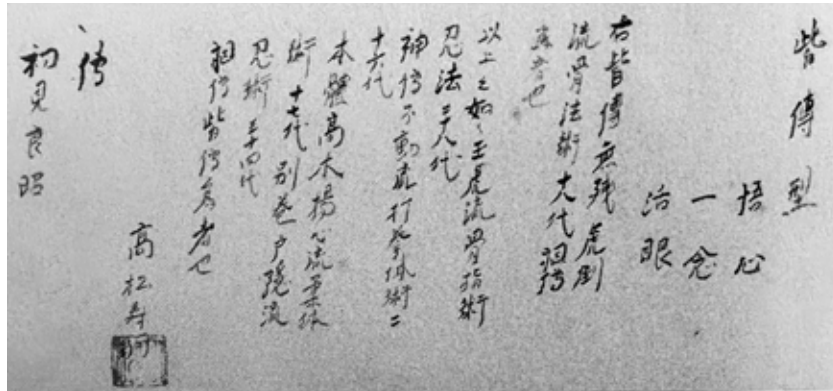 皆傳型
悟心
一念
活眼
右皆傳無残虎倒
流骨法術 十八代相傳
為者也
以上之如ク玉虎流骨指術
忍法二十八代
神傳不動流打拳体術二
十六代
本體高木揚心流柔体
術 十七代別巻戸隠流
忍術 三十四代
相傳皆傳為者也
高松寿嗣
傳
初見良昭